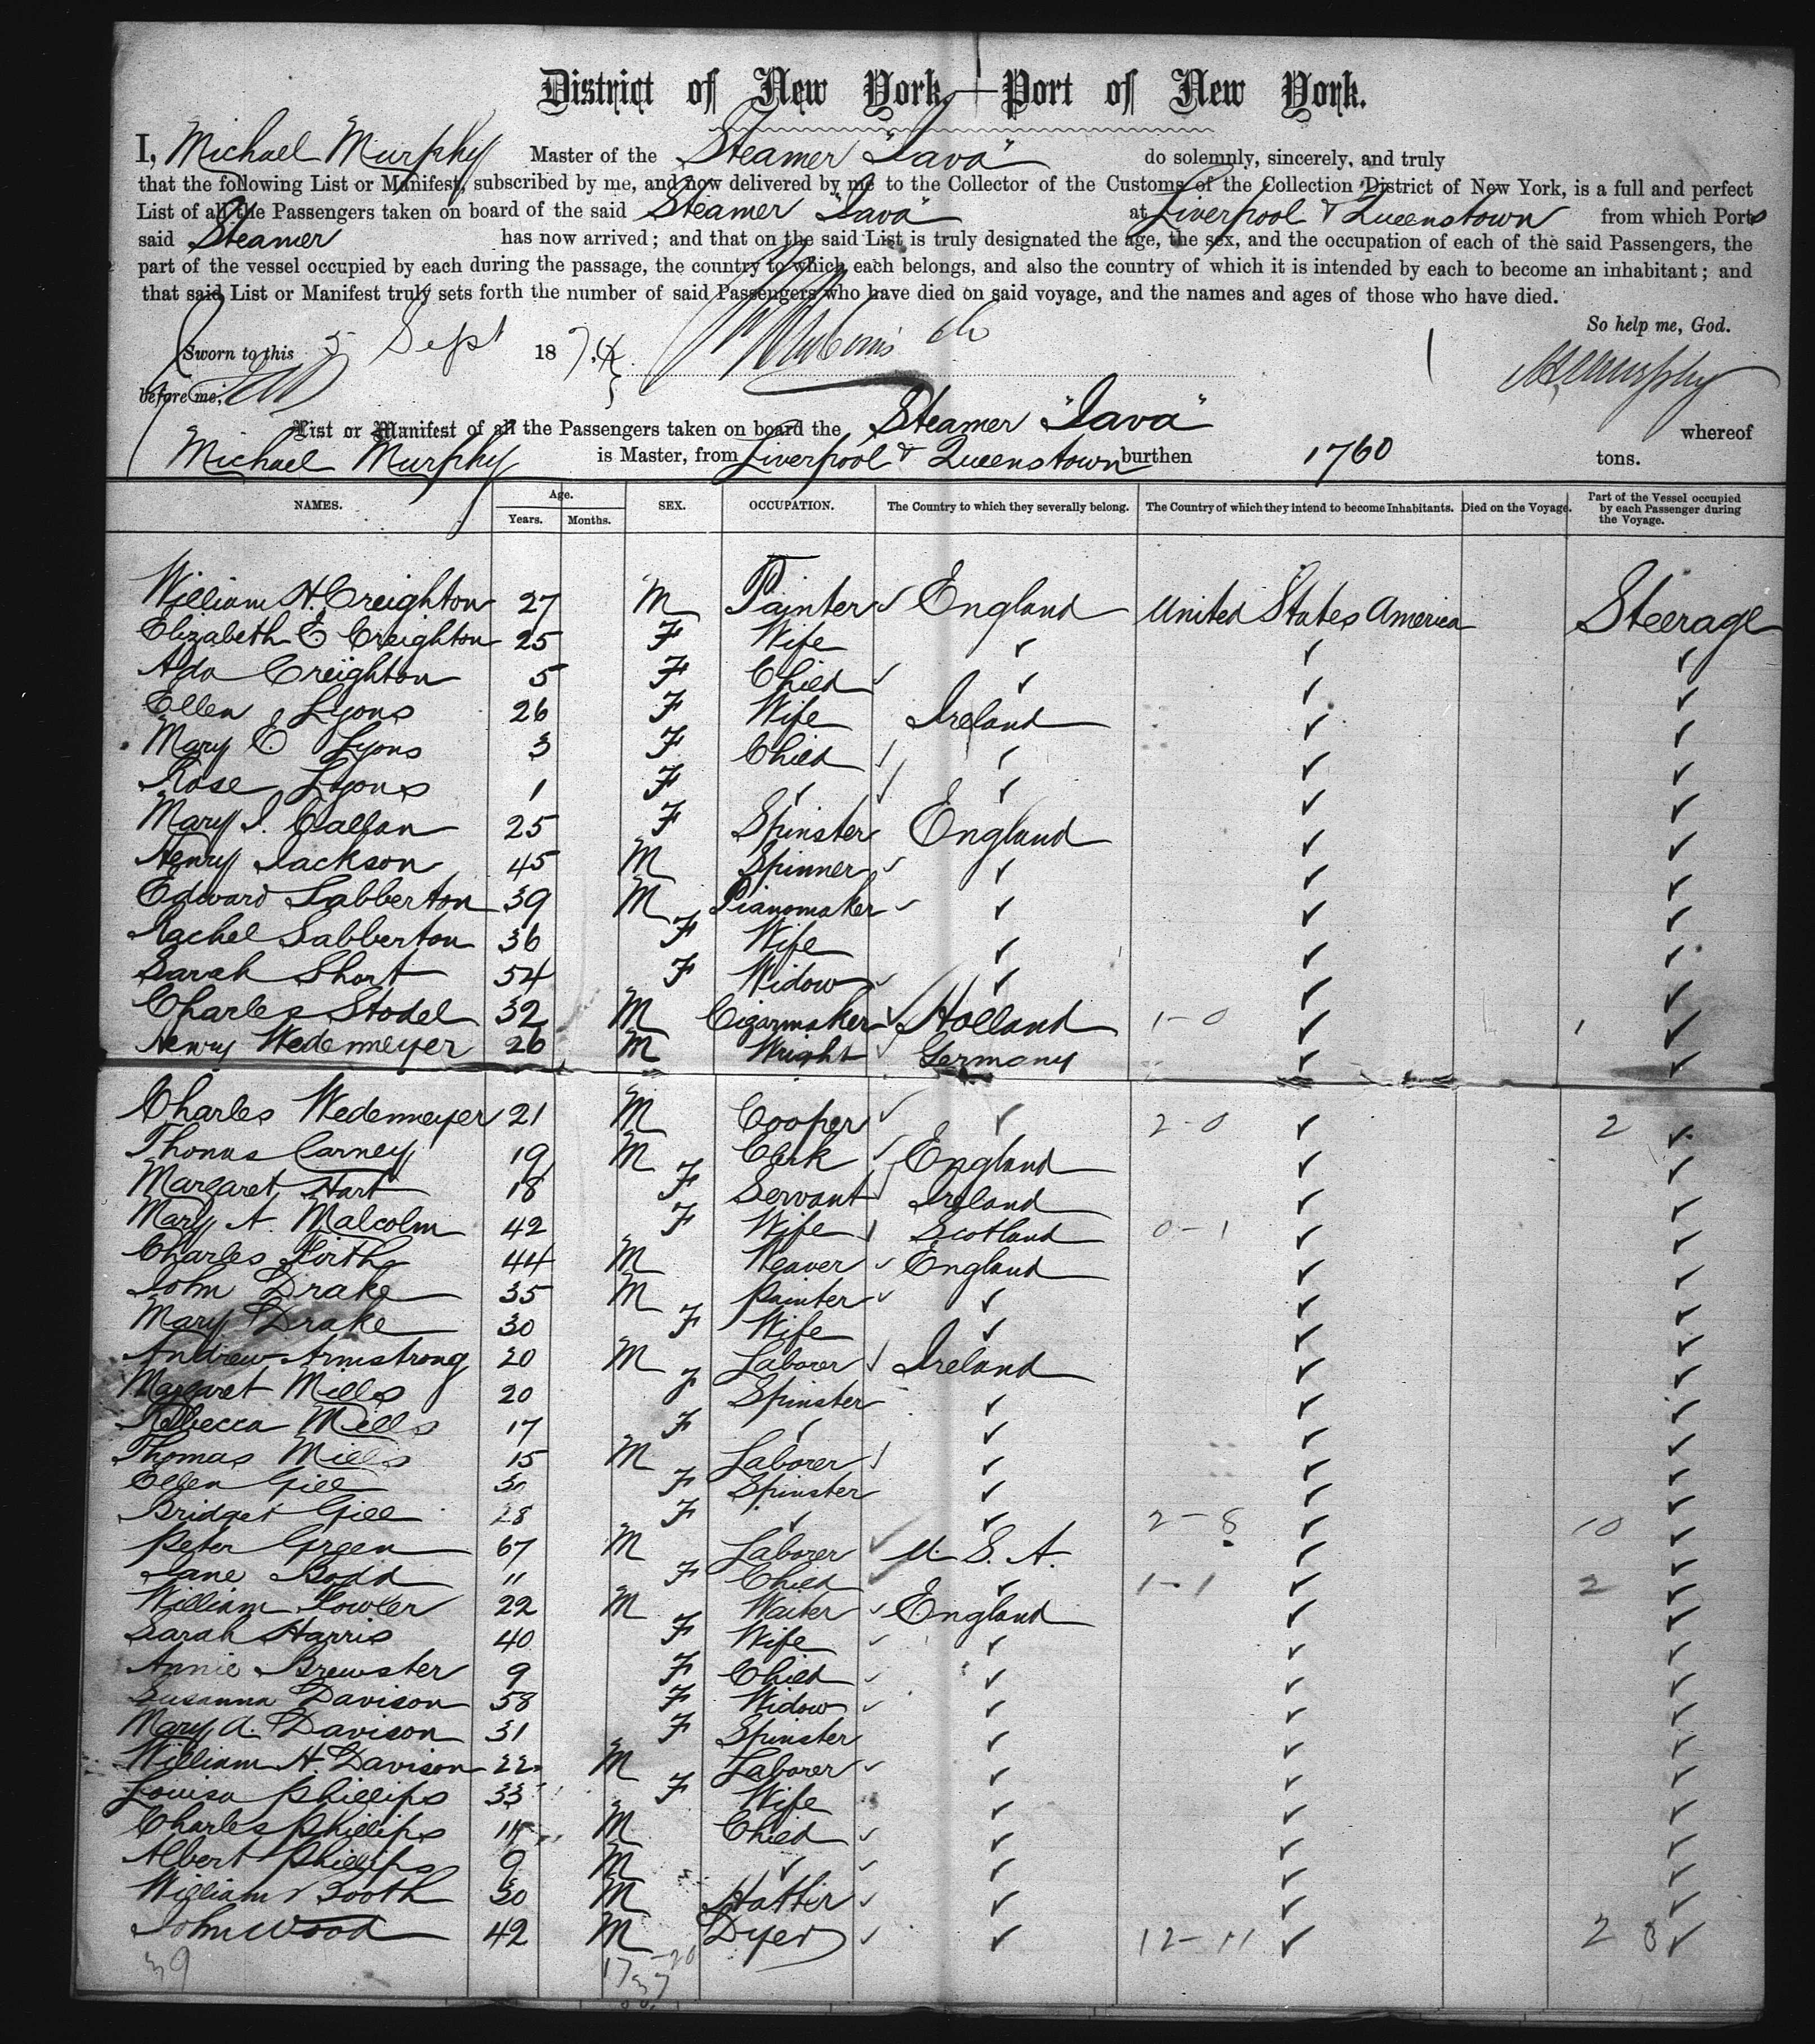 District of New York.—Port of New York.
I, Michael Murphy Master of the Steamer "Java" do solemnly, sincerely, and truly
that the following List or Manifest, subscribed by me, and now delivered by me to the Collector of the Customs of the Collection District of New York, is a full and perfect
List of all the Passengers taken on board of the said Steamer "Java" at Liverpool & Queenstown from which Ports
said Steamer has now arrived; and that on the said List is truly designated the age, the sex, and the occupation of each of the said Passengers, the
part of the vessel occupied by each during the passage, the country to which each belongs, and also the country of which it is intended by each to become an inhabitant; and
that said List or Manifest truly sets forth the number of said Passengers who have died on said voyage, and the names and ages of those who have died.
So help me, God.
Sworn to this 5 Sept 1874 M Murphy
before me,
List or Manifest of all the Passengers taken on board the Steamer "Java" whereof
Michael Murphy is Master, from Liverpool & Queenstown burthen 1760 tons.
NAMES. Age. Years. Months. SEX. OCCUPATION. The Country to which they severally belong. The Country of which they intend to become Inhabitants. Died on the Voyage. Part of the Vessel occupied by each Passenger during the Voyage.
William H. Creighton 27 M Painter ✓ England United States America Steerage
Elizabeth E Creighton 25 F Wife ✓ ✓ ✓
Ada Creighton 5 F Child ✓ ✓ ✓ ✓
Ellen Lyons 26 F Wife Ireland ✓ ✓
Mary E Lyons 3 F Child ✓ ✓ ✓ ✓
Rose Lyons 1 F ✓ ✓ ✓ ✓ ✓
Mary J. Callan 25 F Spinster England ✓ ✓
Henry Jackson 45 M Spinner ✓ ✓ ✓ ✓
Edward Sabberton 39 M Pianomaker ✓ ✓ ✓ ✓
Rachel Sabberton 36 F Wife ✓ ✓ ✓
Sarah Short 54 F Widow ✓ ✓ ✓ ✓
Charles Stodel 32 M Cigarmaker ✓ Holland 1-0 ✓ 1 ✓
Henry Wedenmeyer 26 M Wright ✓ Germany ✓ ✓
Charles Wedenmeyer 21 M Cooper ✓ ✓ 2-0 ✓ 2 ✓
Thomas Carney 19 M Clerk ✓ England ✓ ✓
Margaret Hart 18 F Servant ✓ Ireland ✓ ✓
Mary A. Malcolm 42 F Wife ✓ Scotland 0-1 ✓ ✓
Charles Firth 44 M Weaver ✓ England ✓ ✓
John Drake 35 M Painter ✓ ✓ ✓ ✓
Mary Drake 30 F Wife ✓ ✓ ✓
Andrew Armstrong 20 M Laborer ✓ Ireland ✓ ✓
Margaret Mills 20 F Spinster ✓ ✓ ✓
Rebecca Mills 17 F ✓ ✓ ✓ ✓
Thomas Mills 15 M Laborer ✓ ✓ ✓ ✓
Ellen Gill 30 F Spinster ✓ ✓ ✓
Bridget Gill 28 F ✓ ✓ 2-8 ✓ 10 ✓
Peter Green 67 M Laborer ✓ U. S. A. ✓ ✓
Jane Bodd 11 F Child ✓ ✓ 1-1 ✓ 2 ✓
William Fowler 22 M Waiter ✓ England ✓ ✓
Sarah Harris 40 F Wife ✓ ✓ ✓ ✓
Annie Brewster 9 F Child ✓ ✓ ✓ ✓
Susanna Davison 58 F Widow ✓ ✓ ✓ ✓
Mary A. Davison 31 F Spinster ✓ ✓ ✓
William H. Davison 22 M Laborer ✓ ✓ ✓ ✓
Louisa Phillips 33 F Wife ✓ ✓ ✓
Charles Phillips 11 M Child ✓ ✓ ✓ ✓
Albert Phillips 9 M ✓ ✓ ✓ ✓ ✓
William Booth 30 M Hatter ✓ ✓ ✓ ✓
John Wood 42 M Dyer ✓ ✓ 12-11 ✓ 23 ✓
39 17-20